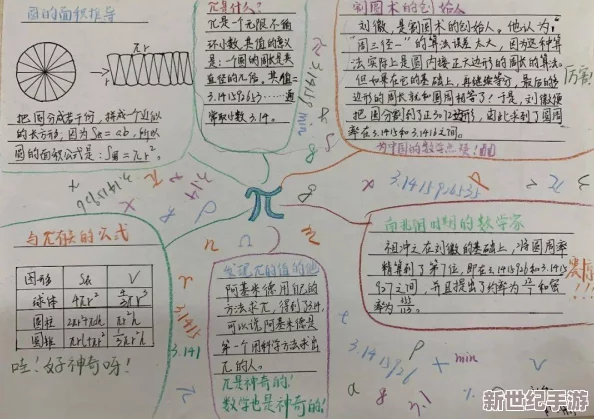 圆的面积推导
πr
r
把圆分成若干份，拼成个近似
的长方形，因为S长=ab，所以
圆的面积公式是：S圆=πr²。
π是什么？
π是一个无限不循
环小数，其值的含义
是：一个圆的周长是其
直径的几倍，其值=
3.141592653……通
常取小数3.14。
割圆术的创始人
刘徽，是割圆术的创始人。他认为，
“周三径一”的算法误差太大，因为这种算
法实际上是圆内接正六边形的周长的算法。
但如果在它的基础上，再继续等分，最后的多
边形的周长就和圆周相等了！于是，刘徽便
把圆分割到了正3072边形，因此求到了圆周
率在3.1415和3.1416之间。
为中国的数学点赞！
厉害！
π
3.1415916535
与π有关的公式
图形 S表 V
球体 4πr² 4/3πr³
圆柱 2πr²+πdh πr²h
圆锥 πr²+πrl 1/3πr²h
哇！好神奇呀！
发现π的值的他
阿基米德用他的
方法求π，得到了3.14，
可以说，阿基米德是
第一个用科学方法求出
π的人。
π是神奇的！
数学也是神奇的！
南北朝时期的数学家
祖冲之在刘徽的基础上，将圆周率
精算到了第7位，即在3.1415926和3.1415
927之间，并且提出了约率为22/7和密
率为355/113。
31415
3.141
3.1415926
min
新世纪手游